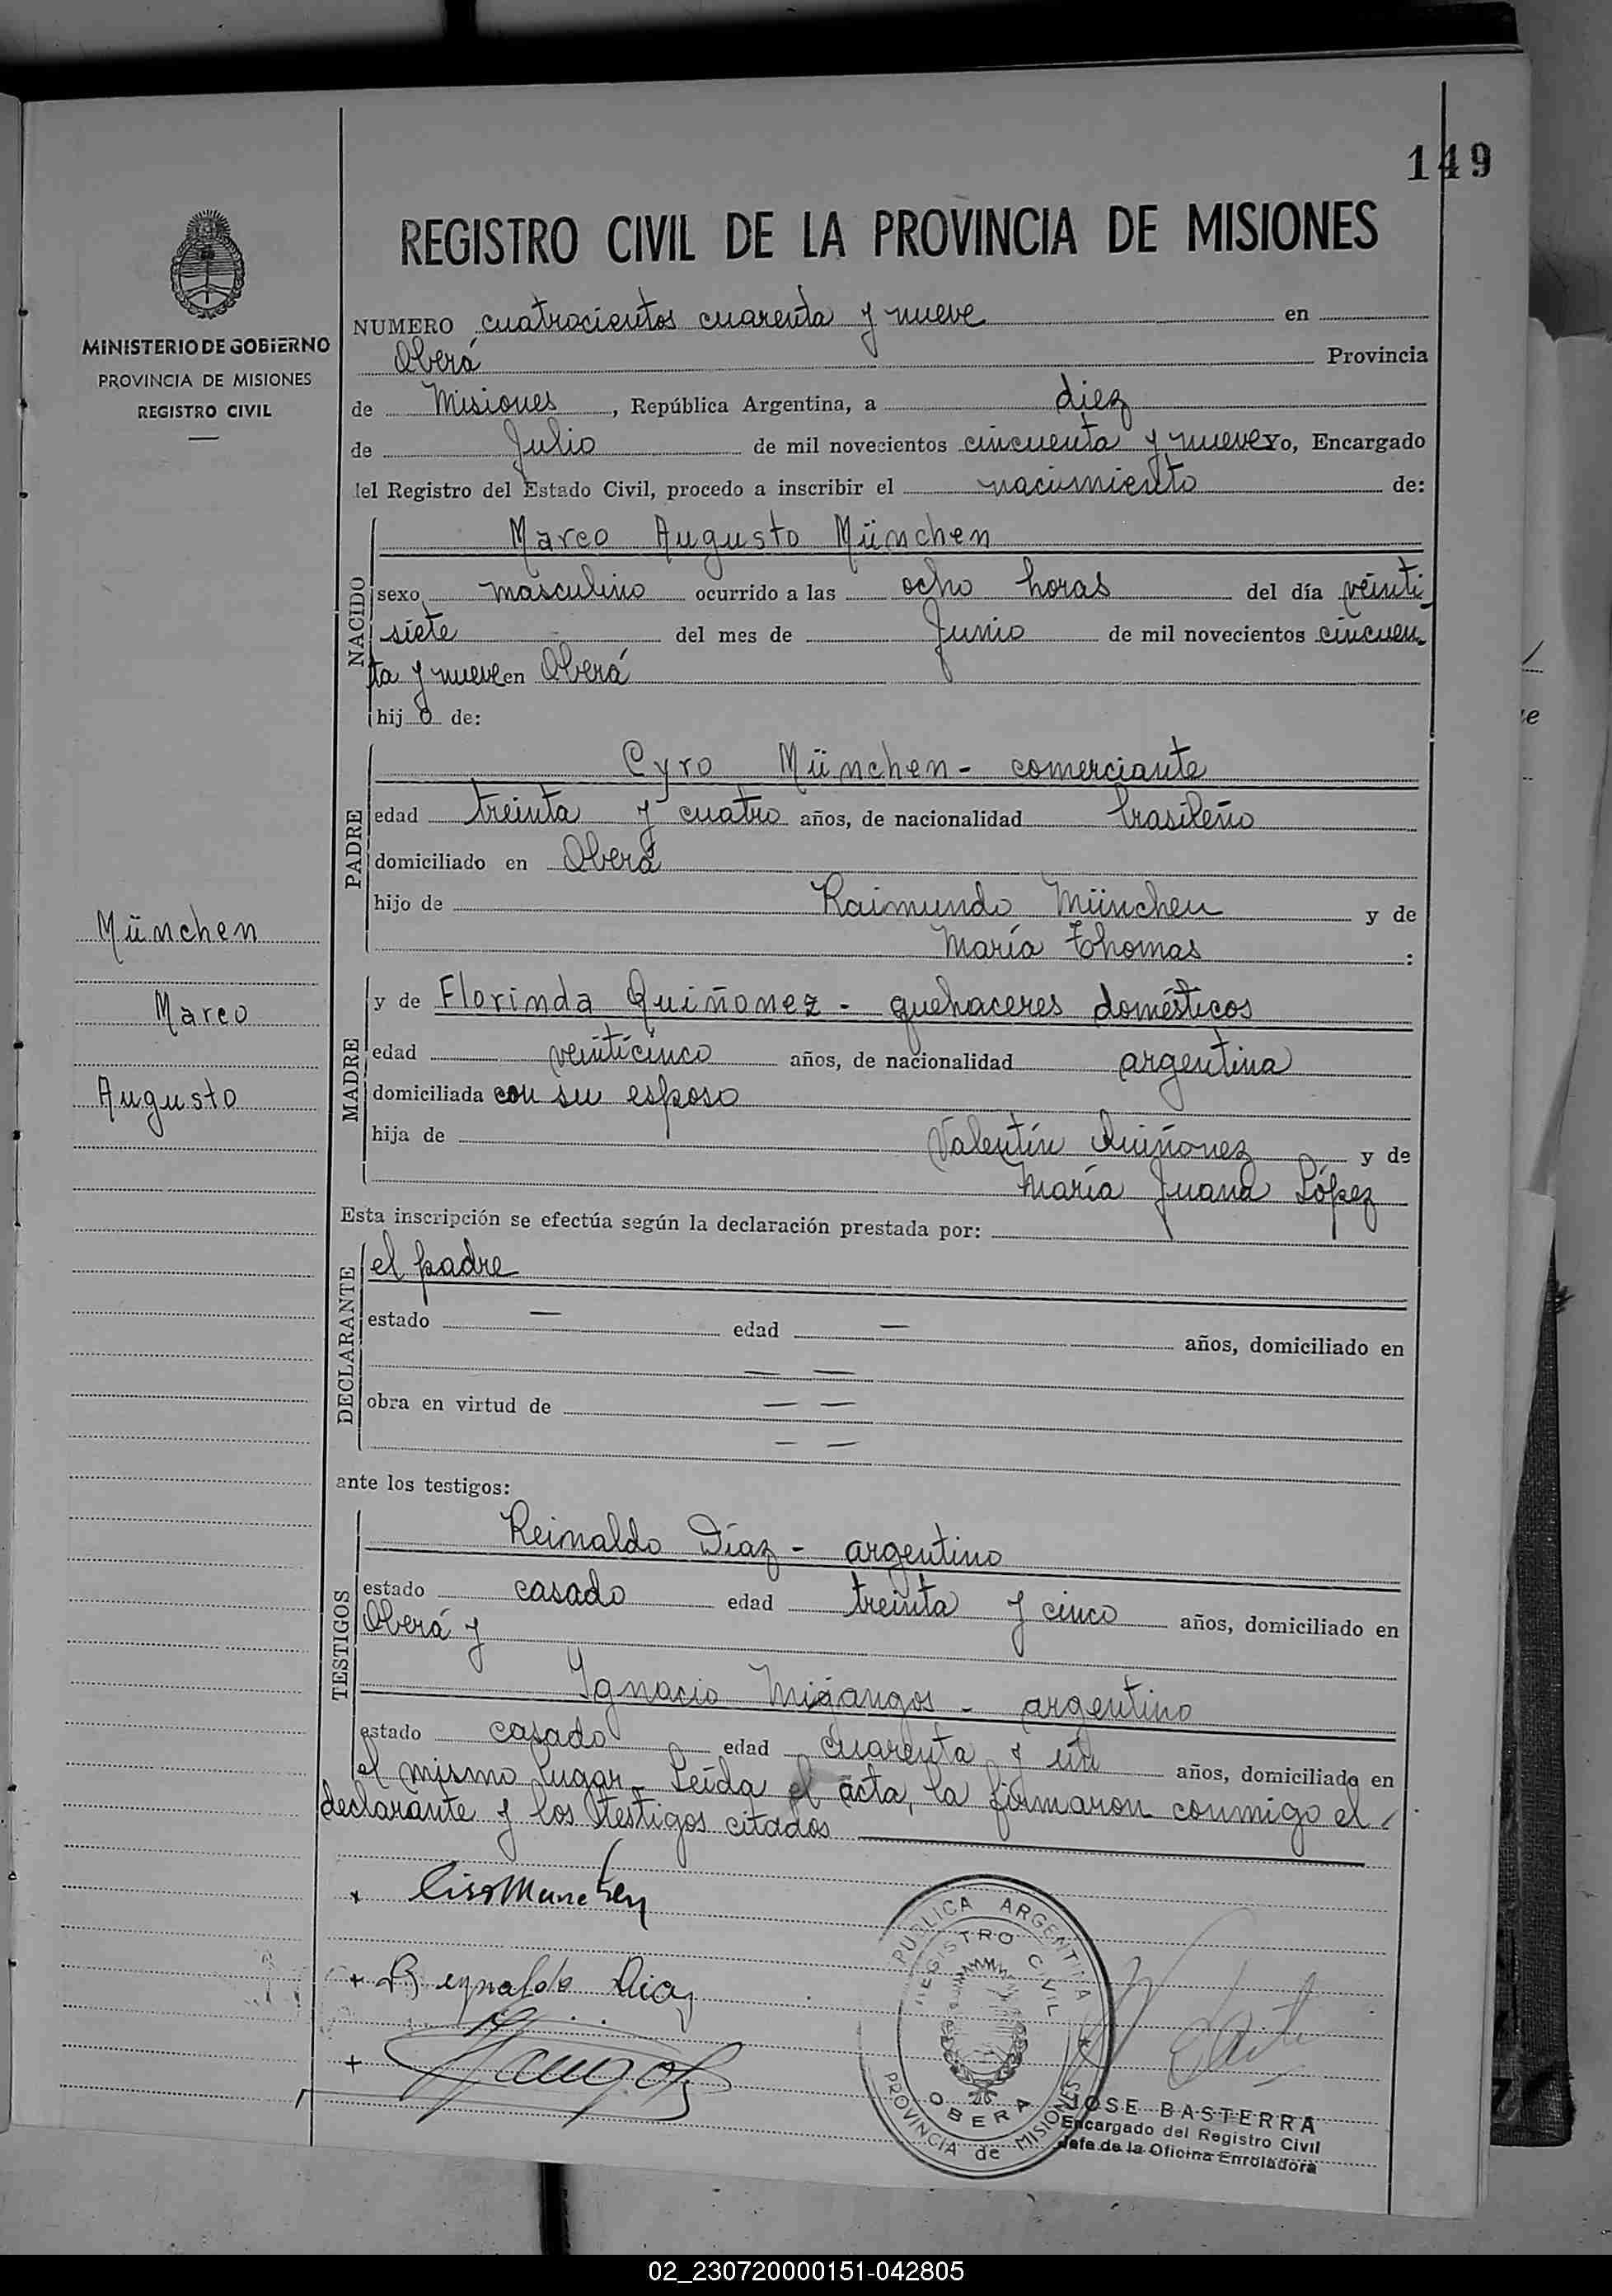 149
REGISTRO CIVIL DE LA PROVINCIA DE MISIONES
MINISTERIO DE GOBIERNO
PROVINCIA DE MISIONES
REGISTRO CIVIL
NUMERO cuatrocientos cuarenta y nueve en
Oberá Provincia
de Misiones, República Argentina, a diez
de Julio de mil novecientos cincuenta y nueve Yo, Encargado
del Registro del Estado Civil, procedo a inscribir el nacimiento de:
NACIDO
Marco Augusto München
sexo masculino ocurrido a las ocho horas del día veinti
siete del mes de Junio de mil novecientos cincuen
ta y nueve en Oberá
hijo de:
PADRE
Cyro München - comerciante
edad treinta y cuatro años, de nacionalidad brasileño
domiciliado en Oberá
hijo de Raimundo München y de
María Thomas:
München
Marco
Augusto
MADRE
y de Florinda Quiñonez - quehaceres domésticos
edad veinticinco años, de nacionalidad argentina
domiciliada con su esposo
hija de Valentín Quiñonez y de
María Juana López
Esta inscripción se efectúa según la declaración prestada por:
DECLARANTE
el padre
estado — edad — años, domiciliado en
— —
obra en virtud de — —
— —
ante los testigos:
TESTIGOS
Reinaldo Díaz - argentino
estado casado edad treinta y cinco años, domiciliado en
Oberá y
Ignacio Migangos - argentino
estado casado edad cuarenta y un años, domiciliado en
el mismo lugar - Leída el acta, la firmaron conmigo el
declarante y los testigos citados
Ciro Munchen
Reynaldo Diaz
REPUBLICA ARGENTINA
REGISTRO CIVIL
OBERA
PROVINCIA de MISIONES
JOSE BASTERRA
Encargado del Registro Civil
Jefe de la Oficina Enroladora
02_230720000151-042805